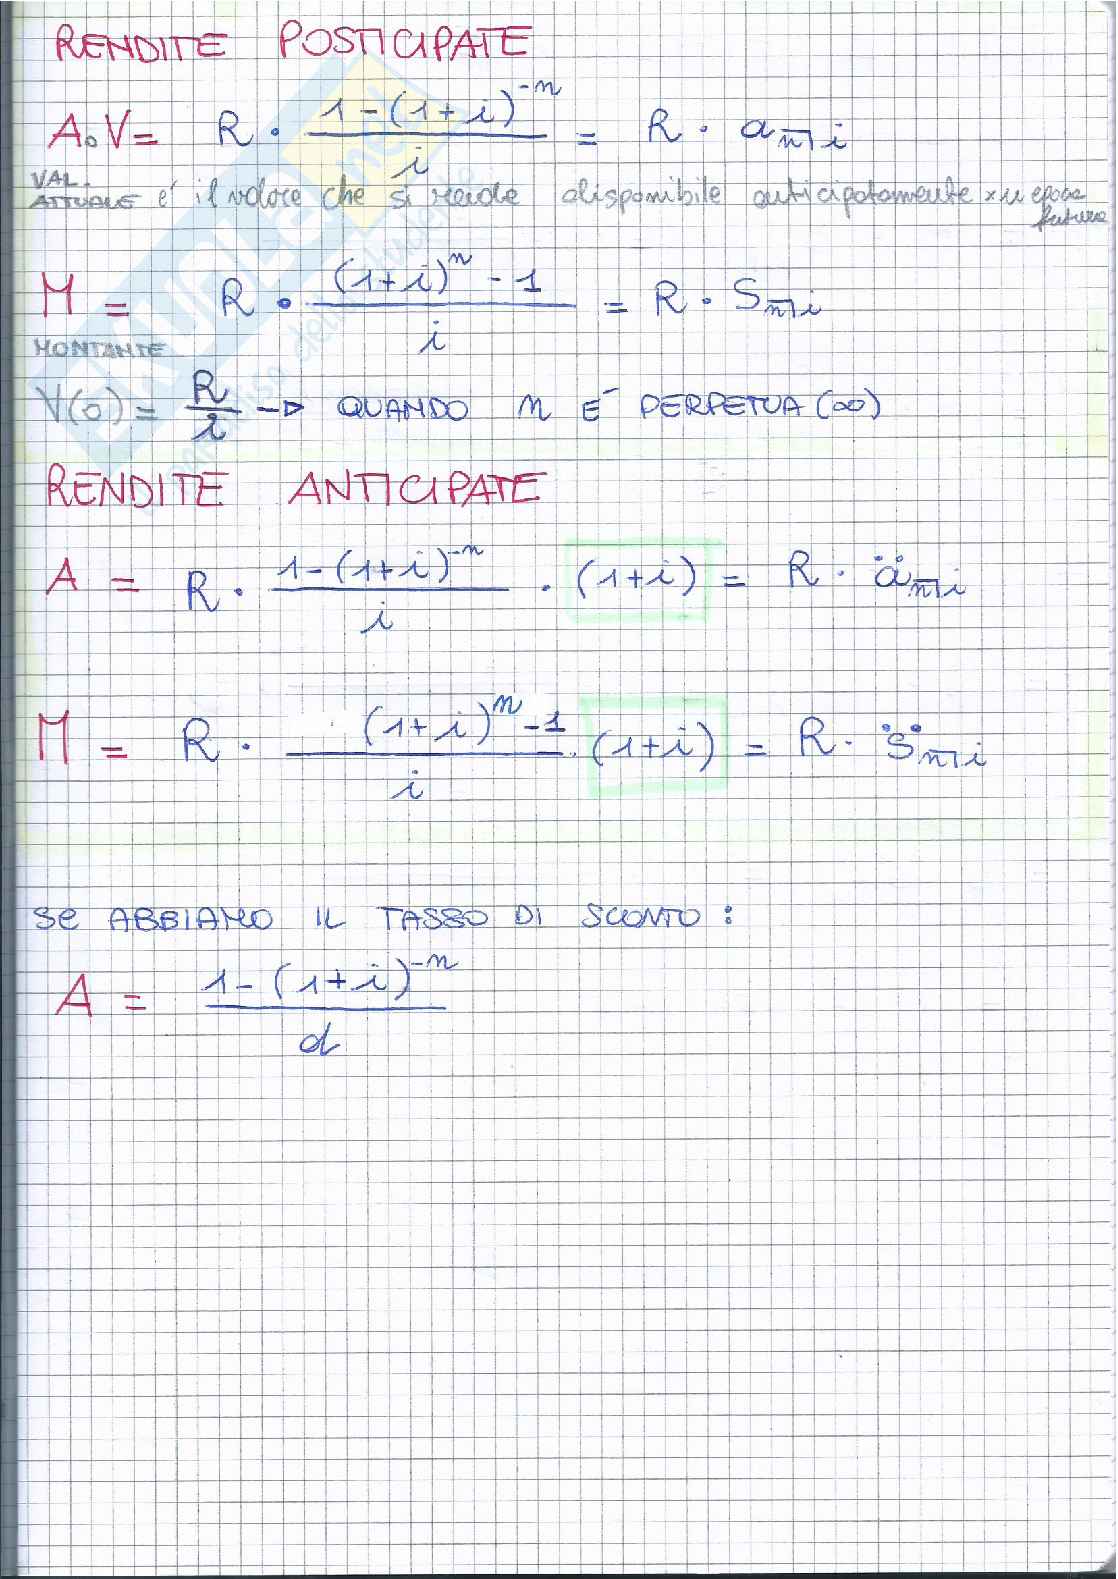 RENDITE POSTICIPATE
A o V = R · (1-(1+i)^-n)/i = R · a n̅| i
VAL. ATTUALE é il valore che si rende disponibile anticipatamente x u epoca futura
M = R · ((1+i)^n - 1)/i = R · S n̅| i
MONTANTE
V(0) = R/i -> QUANDO n É PERPETUA (∞)
RENDITE ANTICIPATE
A = R · (1-(1+i)^-n)/i · (1+i) = R · ä n̅| i
M = R · ((1+i)^n - 1)/i · (1+i) = R · s̈ n̅| i
Se ABBIAMO IL TASSO DI SCONTO :
A = (1-(1+i)^-n)/d